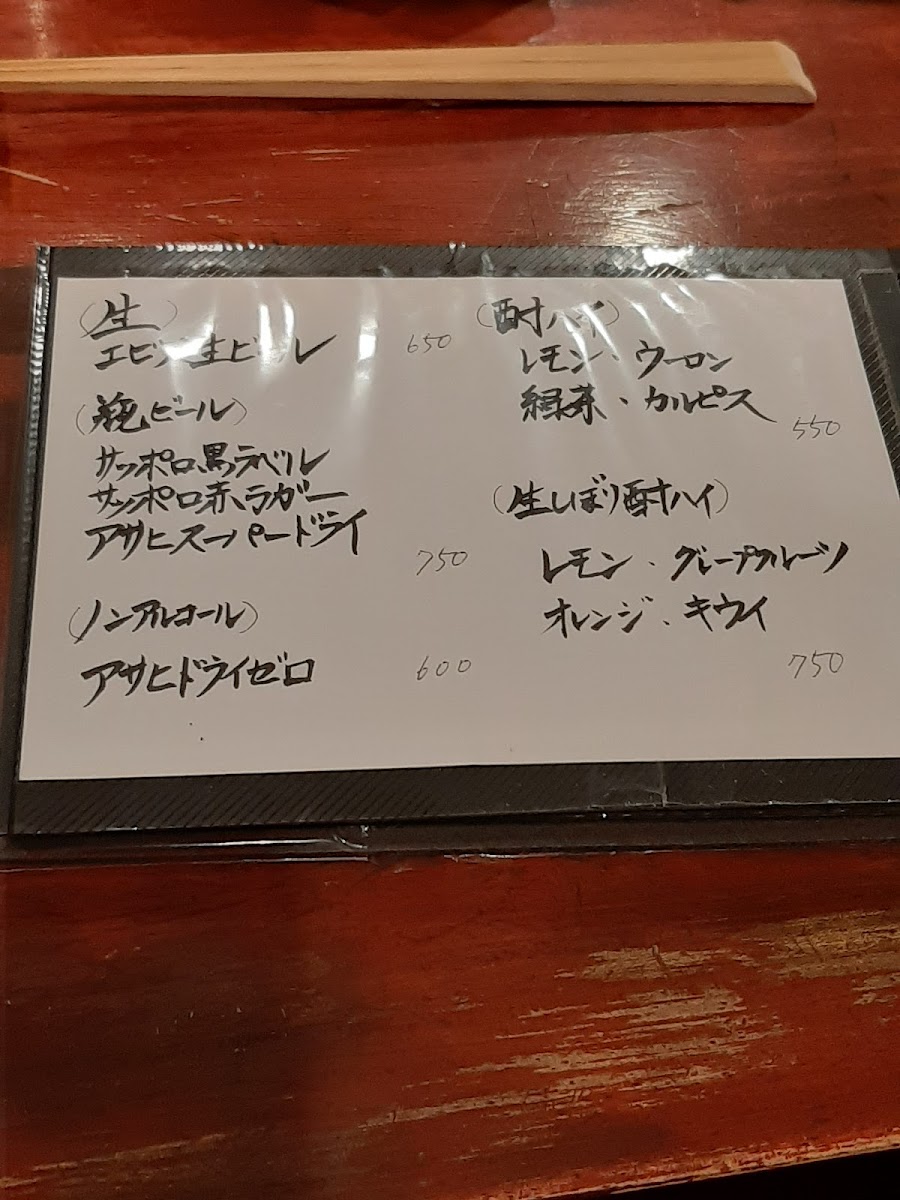 (生)
エビス生ビール 650
(瓶ビール)
サッポロ黒ラベル
サッポロ赤ラガー
アサヒスーパードライ
750
(ノンアルコール)
アサヒドライゼロ 600
(酎ハイ)
レモン・ウーロン
緑茶・カルピス
550
(生しぼり酎ハイ)
レモン・グレープフルーツ
オレンジ・キウイ
750